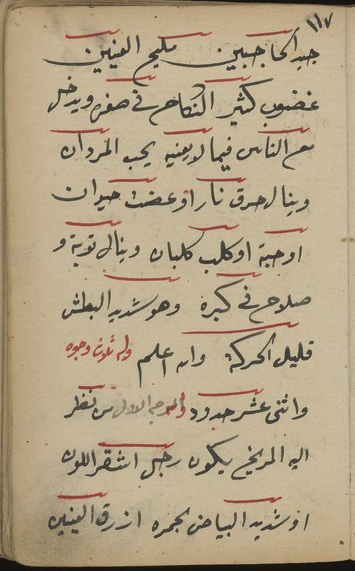 ١١٧
جيد الحاجبين مليح العينين
غضوب كثير النكاح في صغره ويدخل
مع الناس فيما لا يعنيه يحب المردان
وينال حرق نار او عضت حيوان
او حية او كلب كلبان وينال توبة و
صلاح في كبره وهو شديد البطش
قليل الحركة والله اعلم وله ثلاث وجوه
واثنى عشر حدود والوجه الاول من نظر
اليه المريخ يكون رجل اشقر اللون
او شديد البياض بحمره ازرق العينين